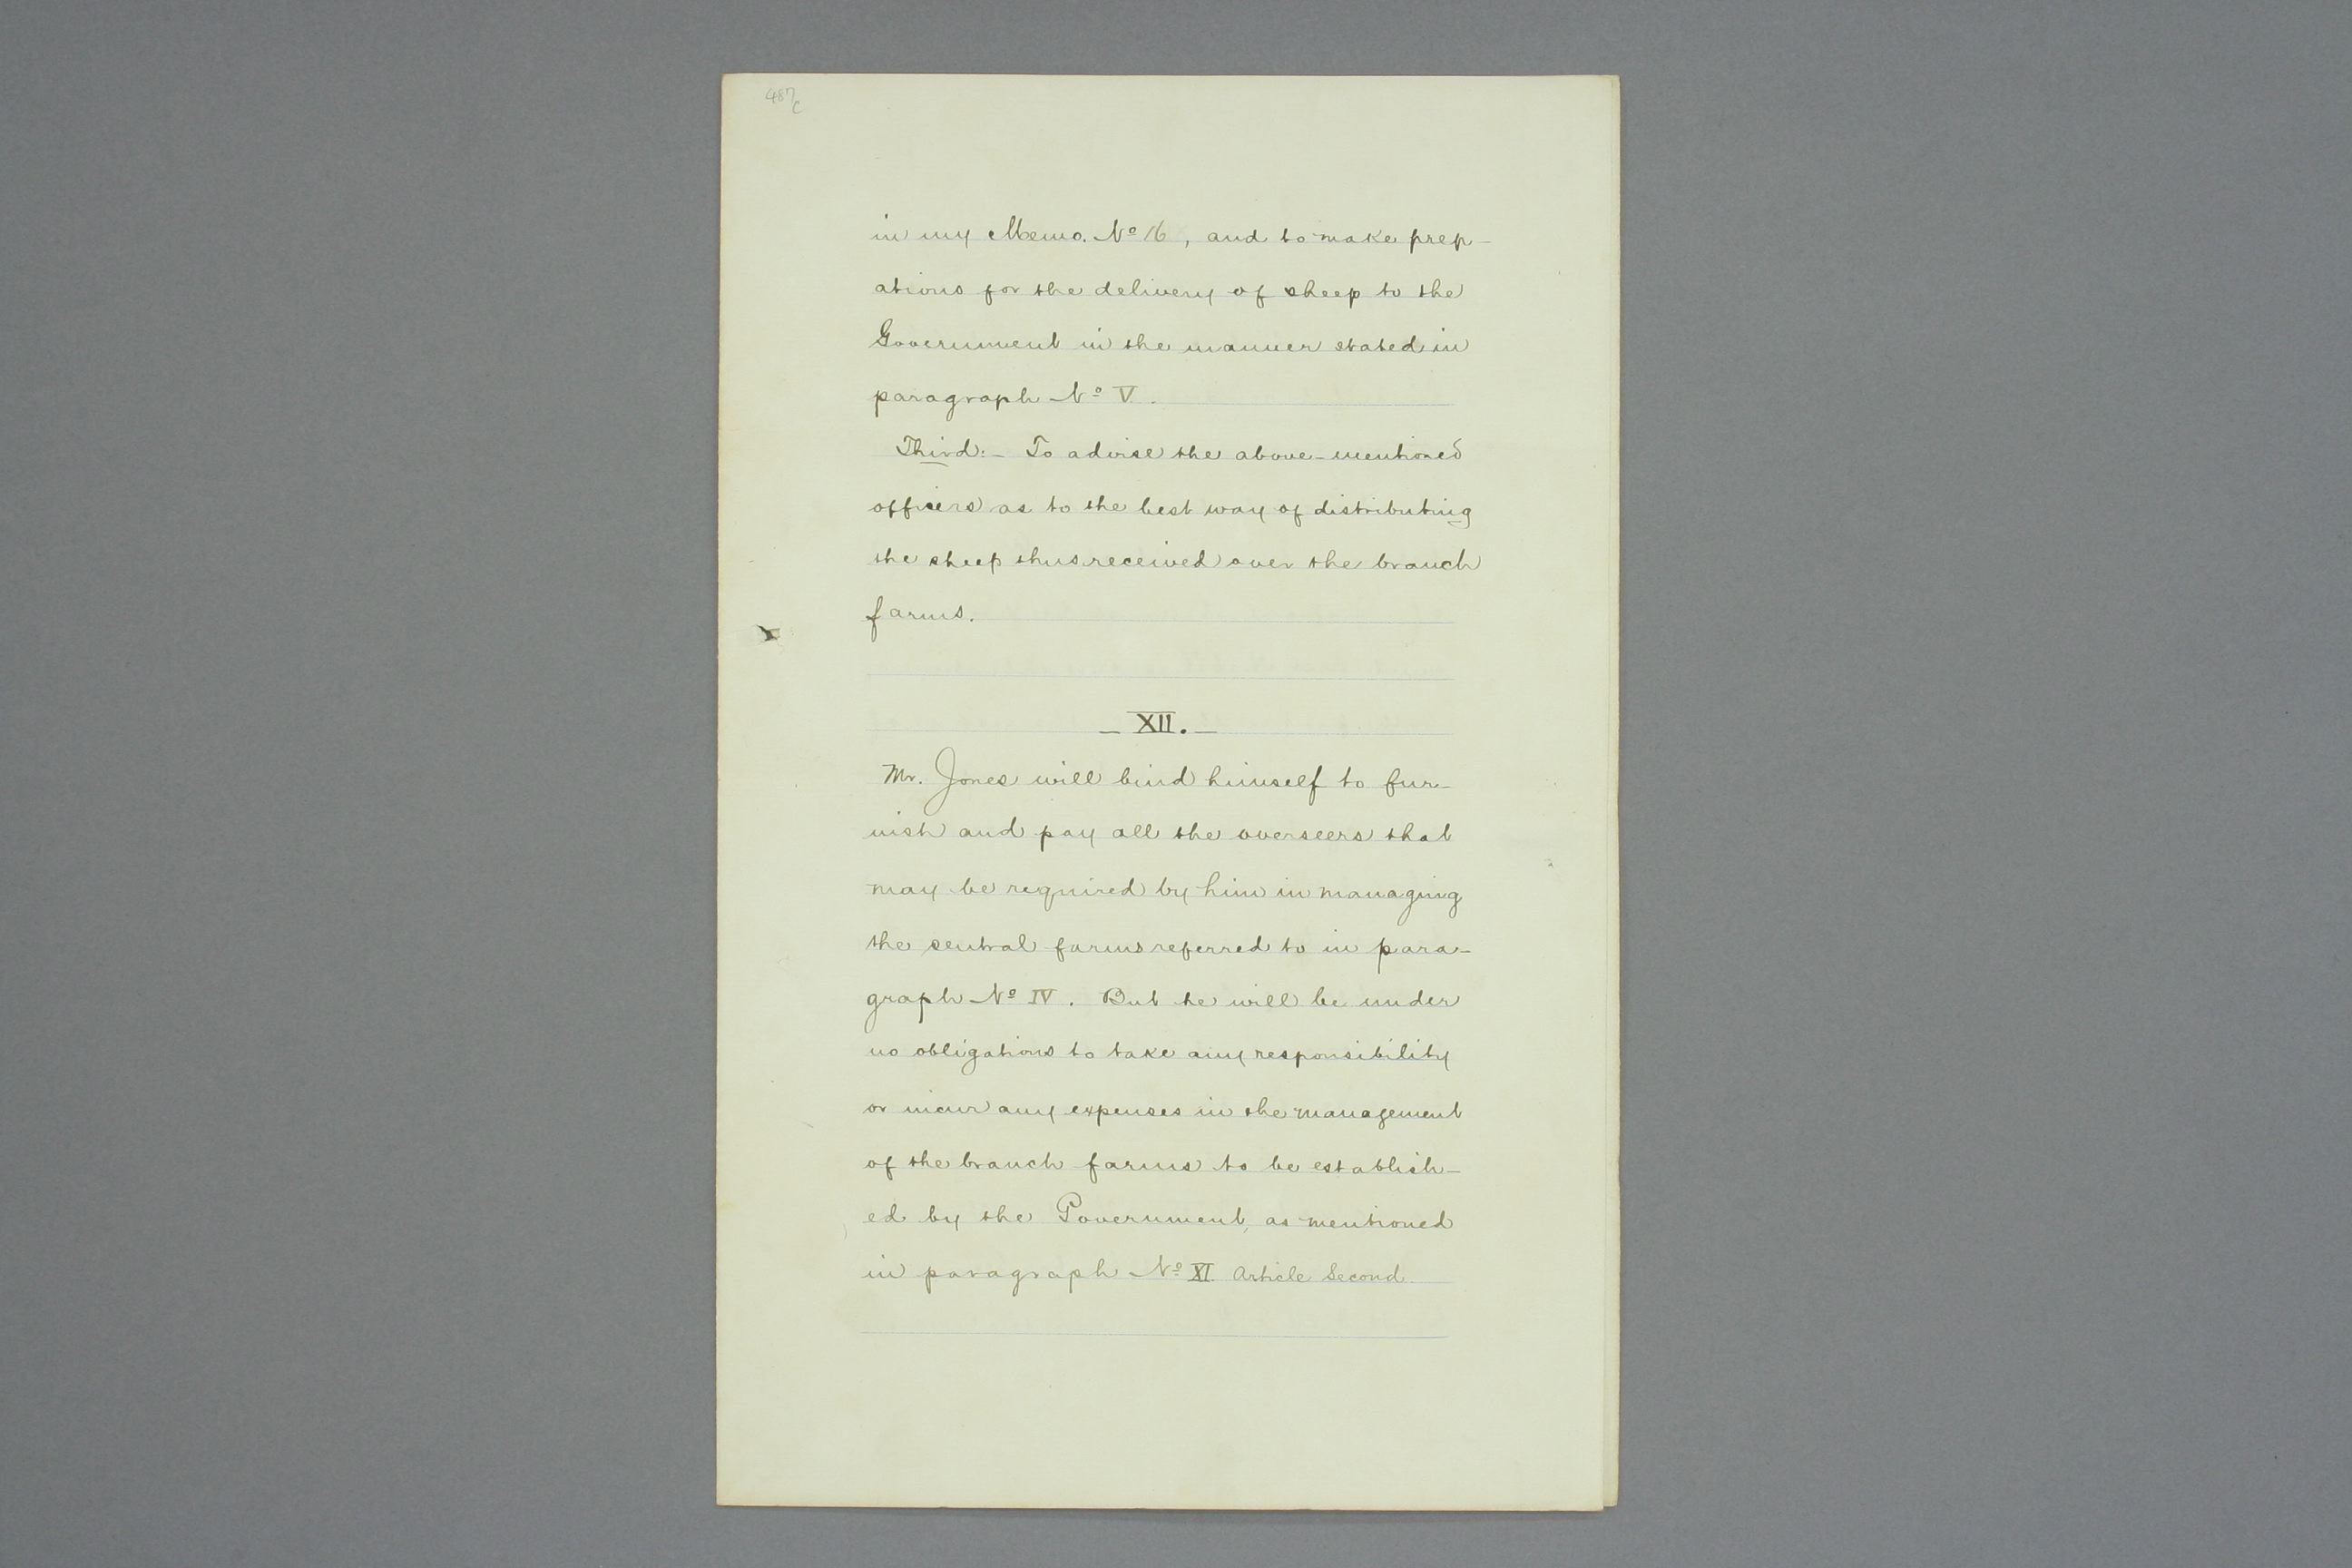 487/c
in my Memo. Nº 16, and to make prep-
ations for the delivery of sheep to the
Government in the manner stated in
paragraph Nº V.
Third:- To advise the above-mentioned
officers as to the best way of distributing
the sheep thus received over the branch
farms.
- XII. -
Mr. Jones will bind himself to fur-
nish and pay all the overseers that
may be required by him in managing
the central farms referred to in para-
graph Nº IV. But he will be under
no obligations to take any responsibility
or incur any expenses in the management
of the branch farms to be establish-
ed by the Government, as mentioned
in paragraph Nº XI Article Second.